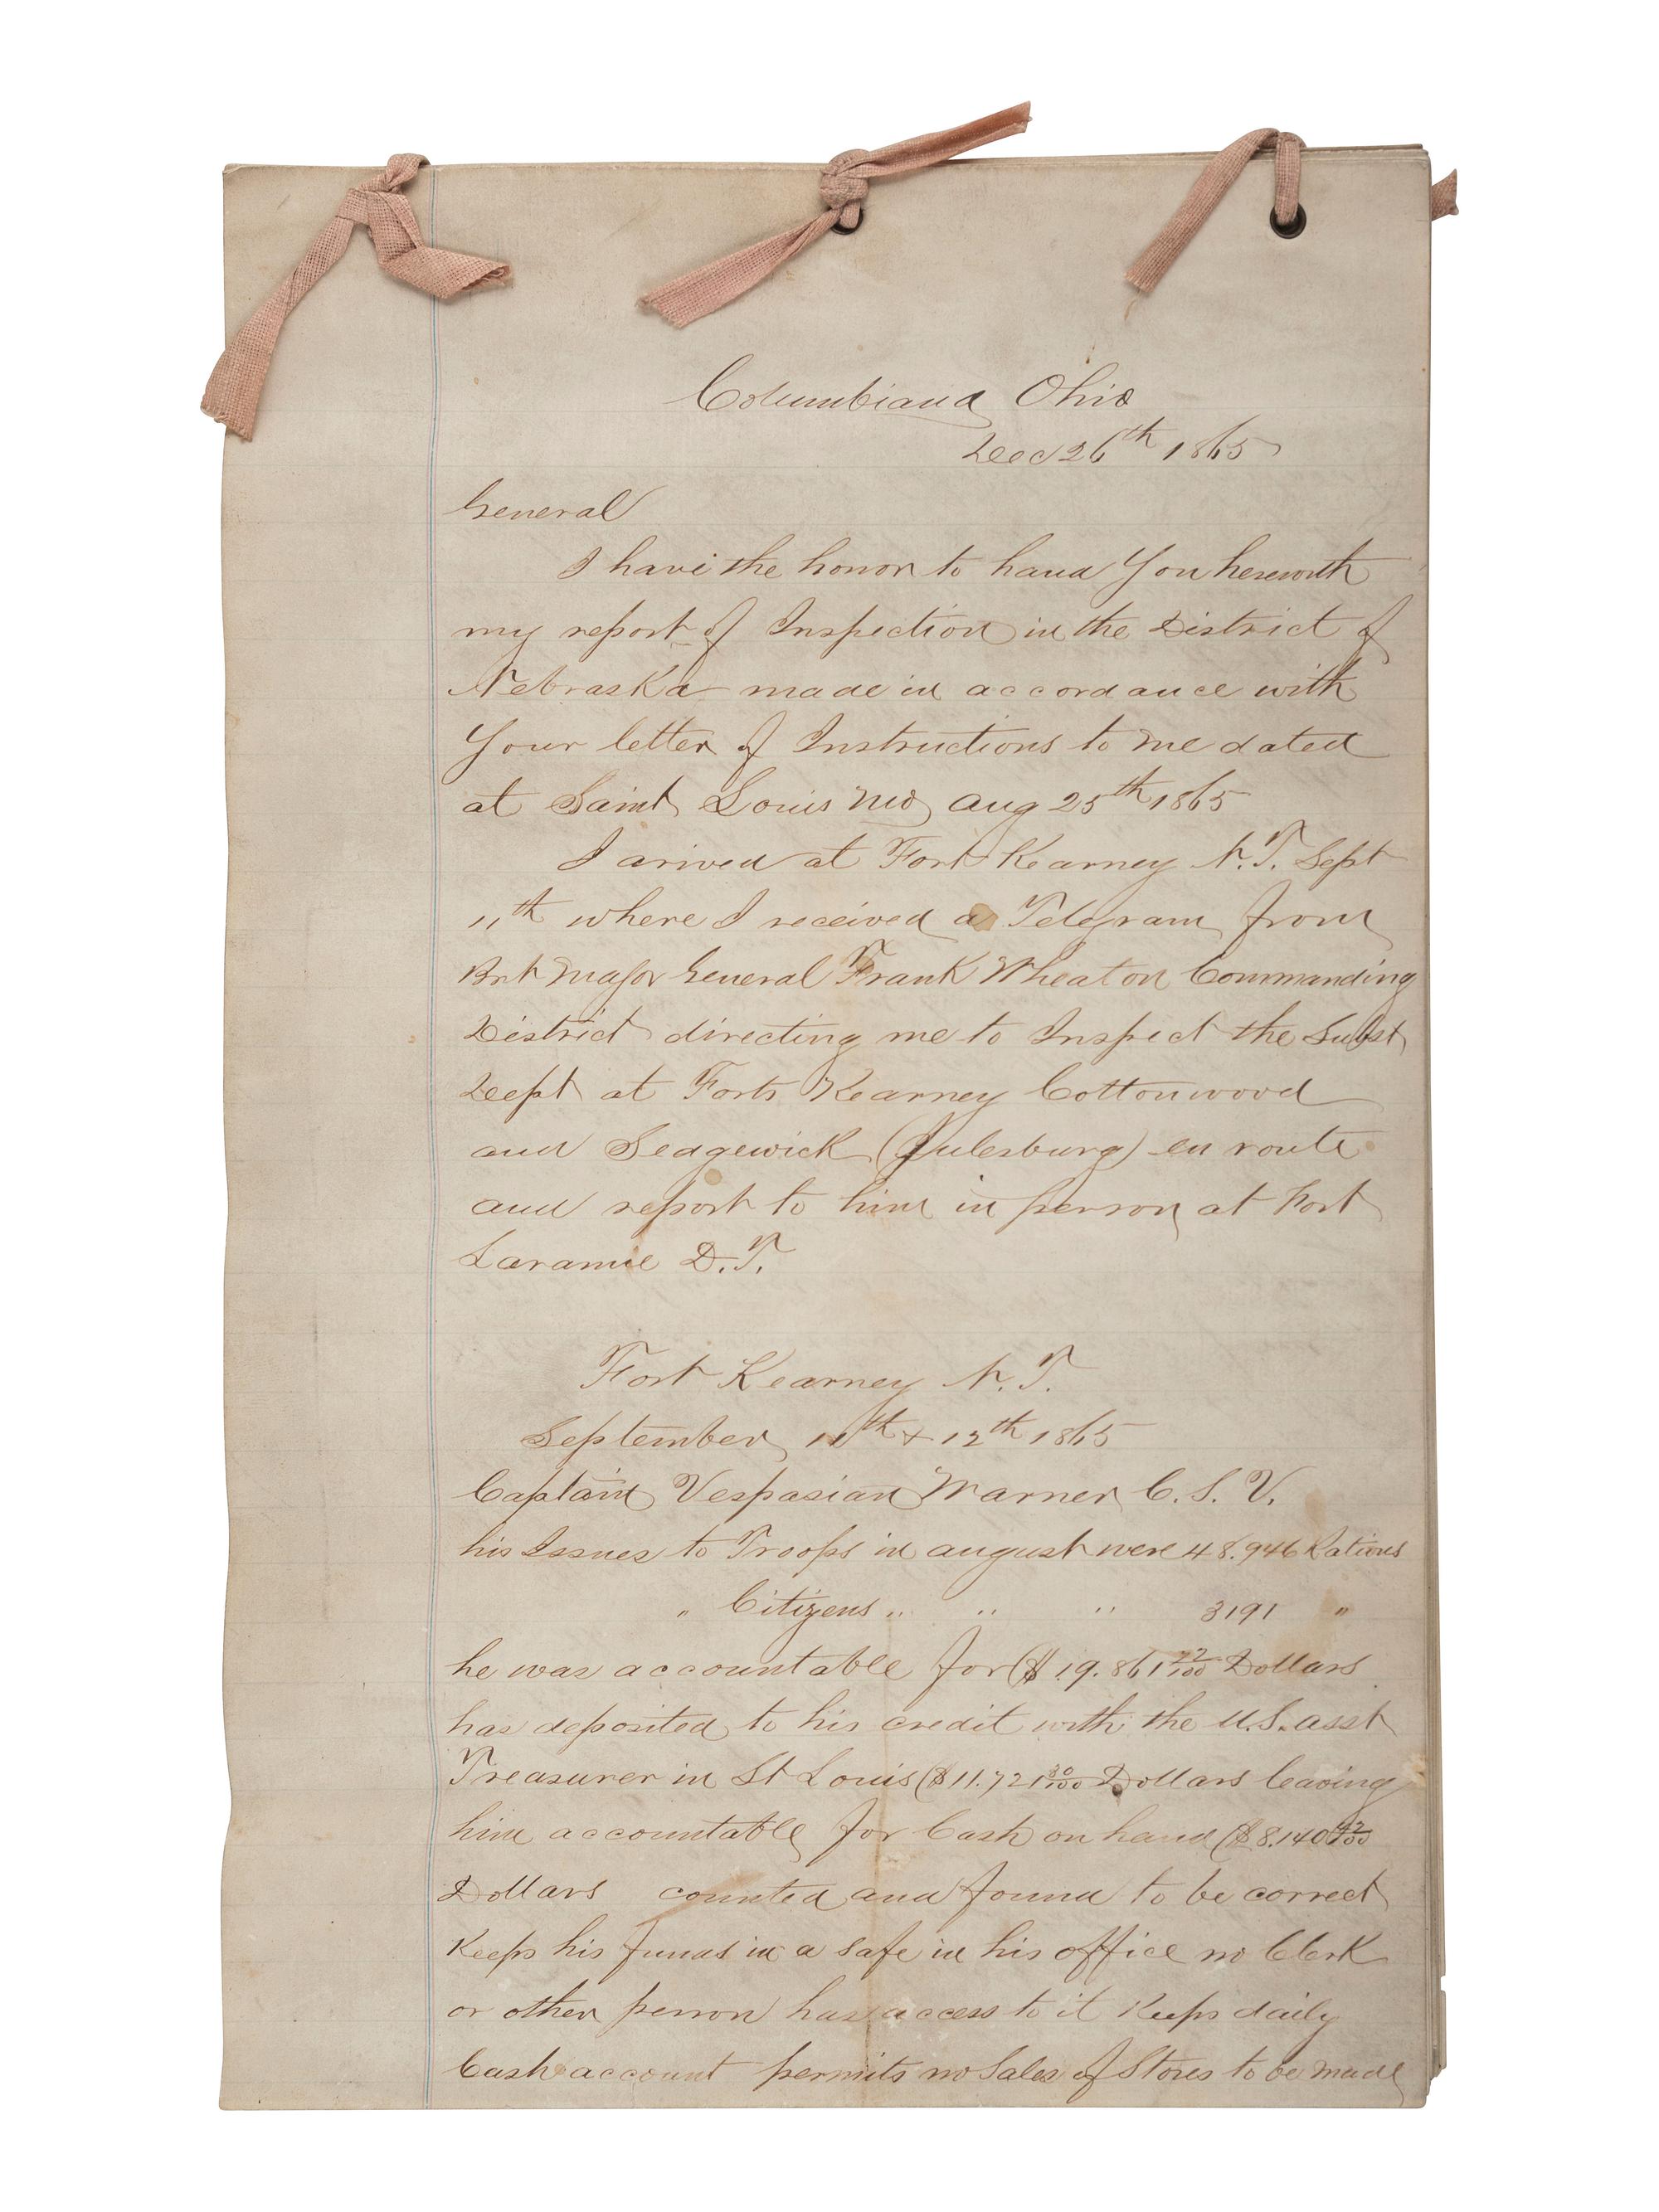 Columbiana Ohio
Dec 26th 1865
General
I have the honor to hand You herewith
my report of Inspection in the District of
Nebraska made in accordance with
Your letter of Instructions to me dated
at Saint Louis Mo Aug 25th 1865
I arived at Fort Kearney N.T. Sept
11th where I received a Telegram from
Bvt Major General Frank Wheaton Commanding
District directing me to Inspect the Subst
Dept at Forts Kearney Cottonwood
and Sedgewick (Julesburg) en route
and report to him in person at Fort
Laramie D.T.
Fort Kearney N.T.
September 11th & 12th 1865
Captain Vespasian Warner C.S.V.
his Issues to Troops in august were 48.946 Rations
" Citizens " " " 3191 "
he was accountable for ($19.861 22/100 Dollars
has deposited to his credit with the U.S. asst
Treasurer in St Louis ($11.721 30/100 Dollars leaving
him accountable for Cash on hand ($8.140 /100
Dollars counted and found to be correct
Keeps his funds in a safe in his office no Clerk
or other person has access to it Keeps daily
Cash account permits no Sales of Stores to be made